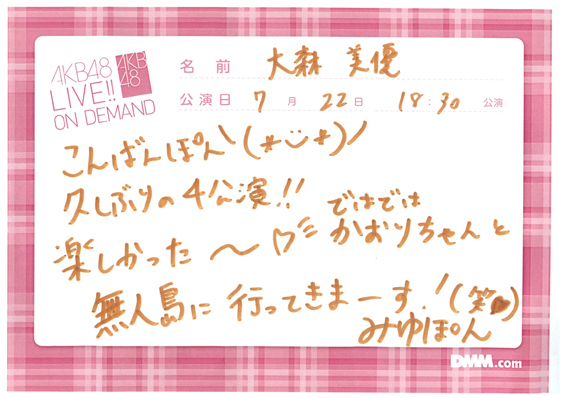 AKB48
LIVE!!
ON DEMAND
AKB
48
名 前 大森 美優
公演日 7 月 22 日 18:30 公演
こんばんぽん\(*¨*)/
久しぶりの4公演!!
楽しかった 〜 ♡ ではでは
かおりちゃんと
無人島に 行ってきまーす!(笑♥)
みゆぽん
DMM.com